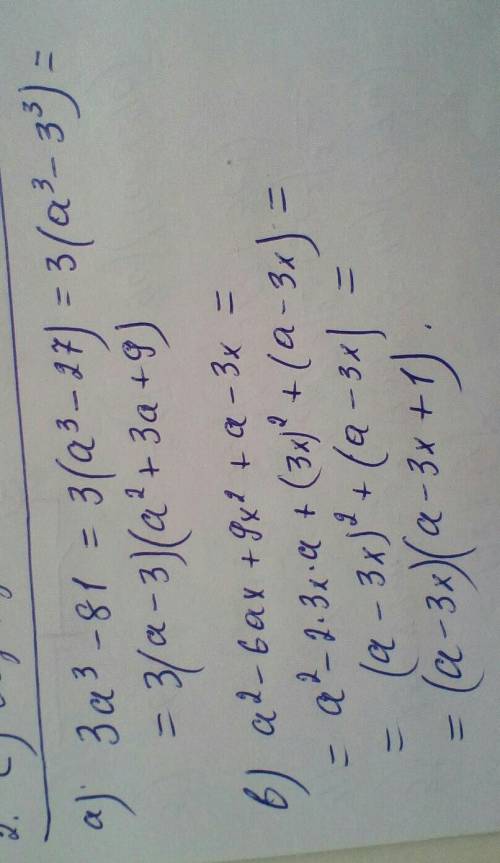 2.
а) 3a³ - 81 = 3(a³ - 27) = 3(a³ - 3³) =
= 3(a - 3)(a² + 3a + 9)
в) a² - 6ax + 9x² + a - 3x =
= a² - 2·3x·a + (3x)² + (a - 3x) =
= (a - 3x)² + (a - 3x) =
= (a - 3x)(a - 3x + 1).